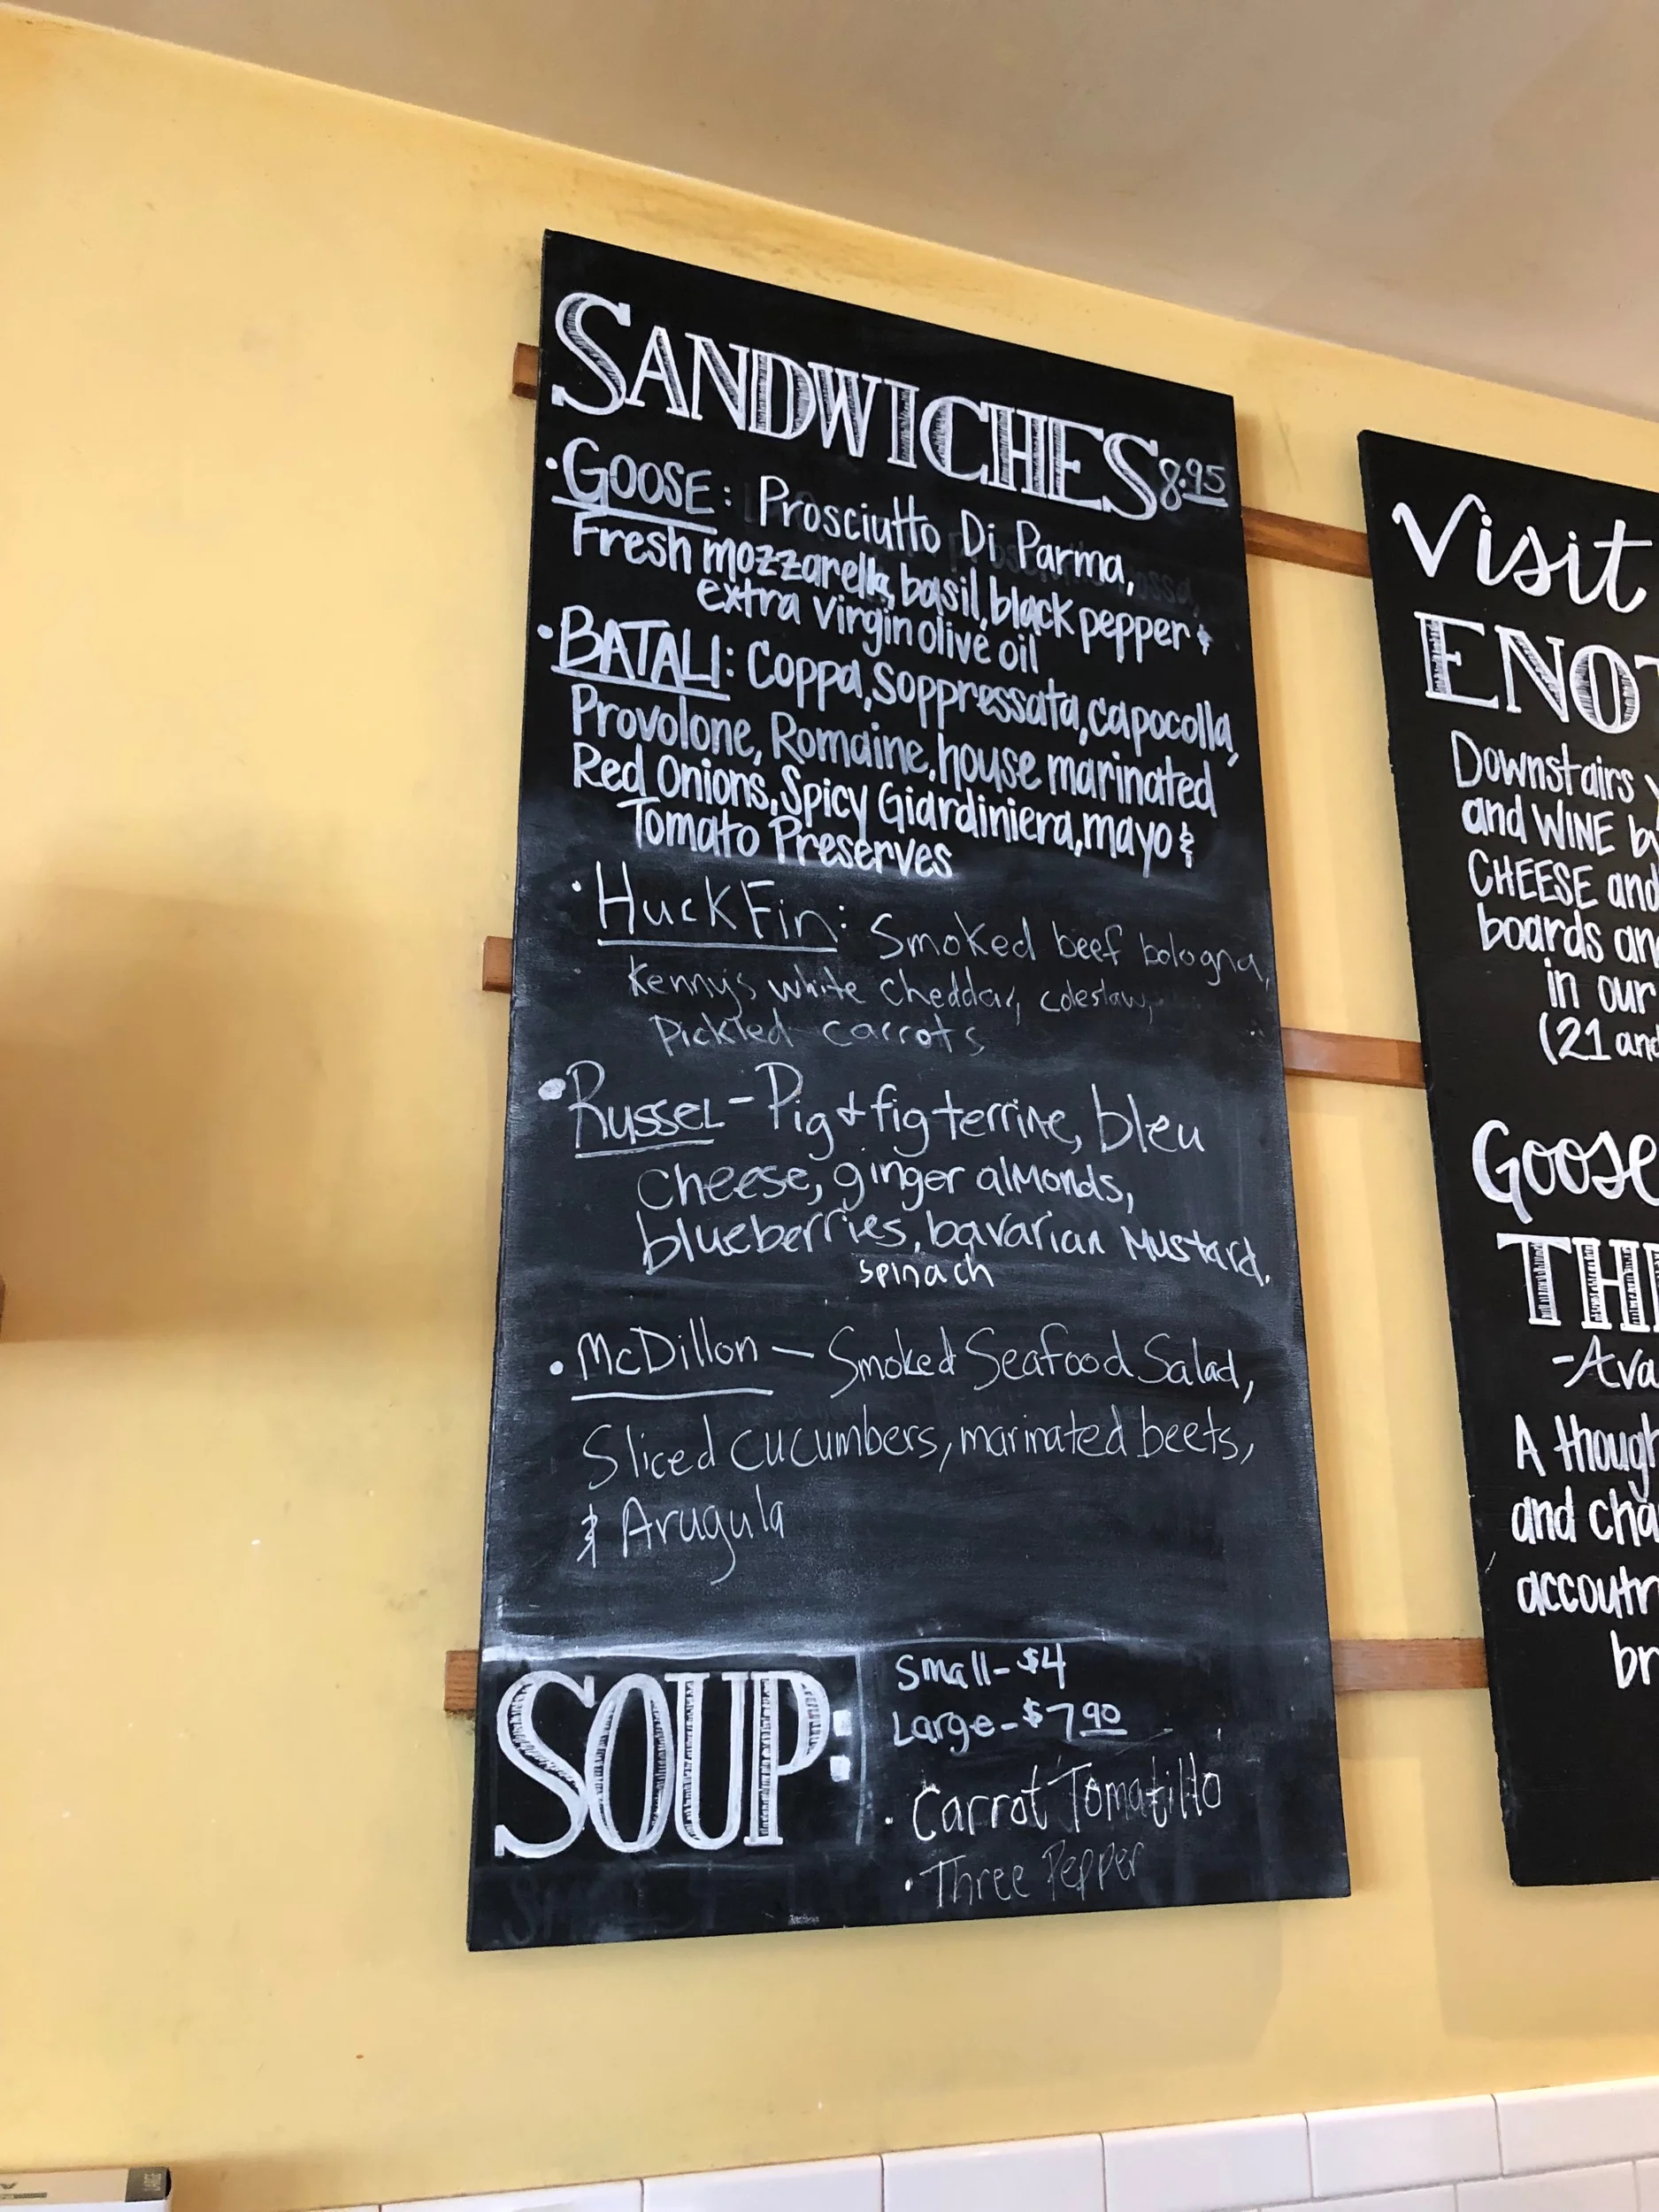 SANDWICHES 8.95
• GOOSE: Prosciutto Di Parma,
Fresh mozzarella, basil, black pepper &
extra virgin olive oil
• BATALI: Coppa, Soppressata, capocolla,
Provolone, Romaine, house marinated
Red Onions, Spicy Giardiniera, mayo &
Tomato Preserves
• Huck Fin: Smoked beef bologna,
Kenny's white cheddar, coleslaw,
Pickled carrots
• Russel - Pig & fig terrine, bleu
Cheese, ginger almonds,
blueberries, bavarian Mustard,
spinach
• McDillon — Smoked Seafood Salad,
Sliced cucumbers, marinated beets,
& Arugula
SOUP:
Small - $4
Large - $7 90
• Carrot Tomatillo
• Three Pepper
Visit
ENOT
Downstairs y
and WINE by
CHEESE and
boards an
in our
(21 and
Goose
THI
-Ava
A though
and cha
accoutr
br
LARGE